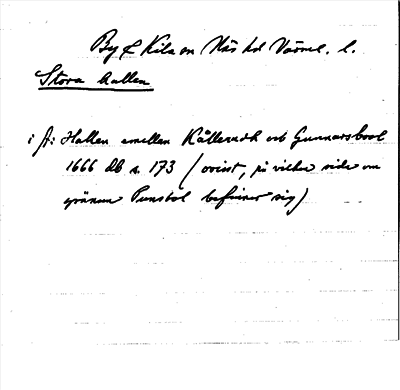 By L Kila sn Näs hd Värml. l.
Stora hallen
i fr: Hallen emellan Kållerudh och Gunnarsbool
1666 db s. 173 (ovisst, på vilken sida om
gränsen Punstol befinner sig)